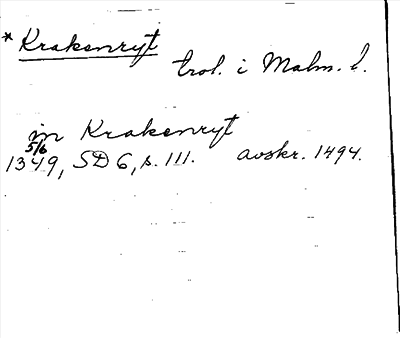 * Krakenryt
trol. i Malm. l.
in Krakenryt
5/6
1349, SD 6, s. 111. avskr. 1494.